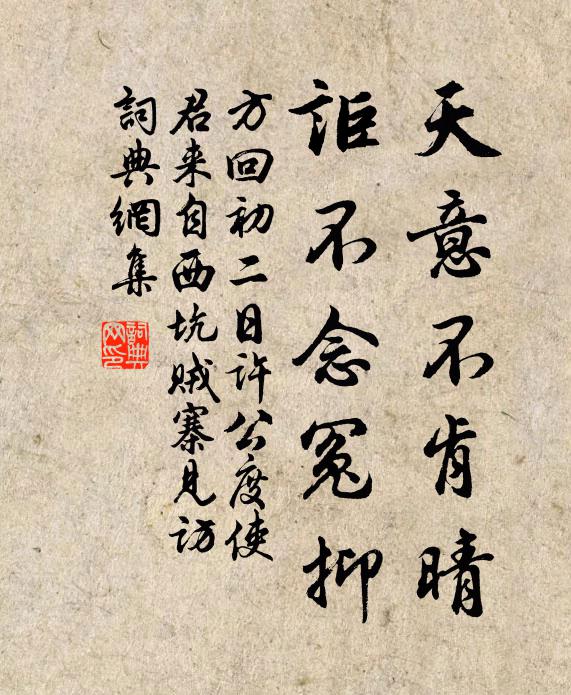 天意不肯晴
詎不念冤抑
方回初二日許公度使
君来自西坑贼寨見訪
詞典網集
詞典网印